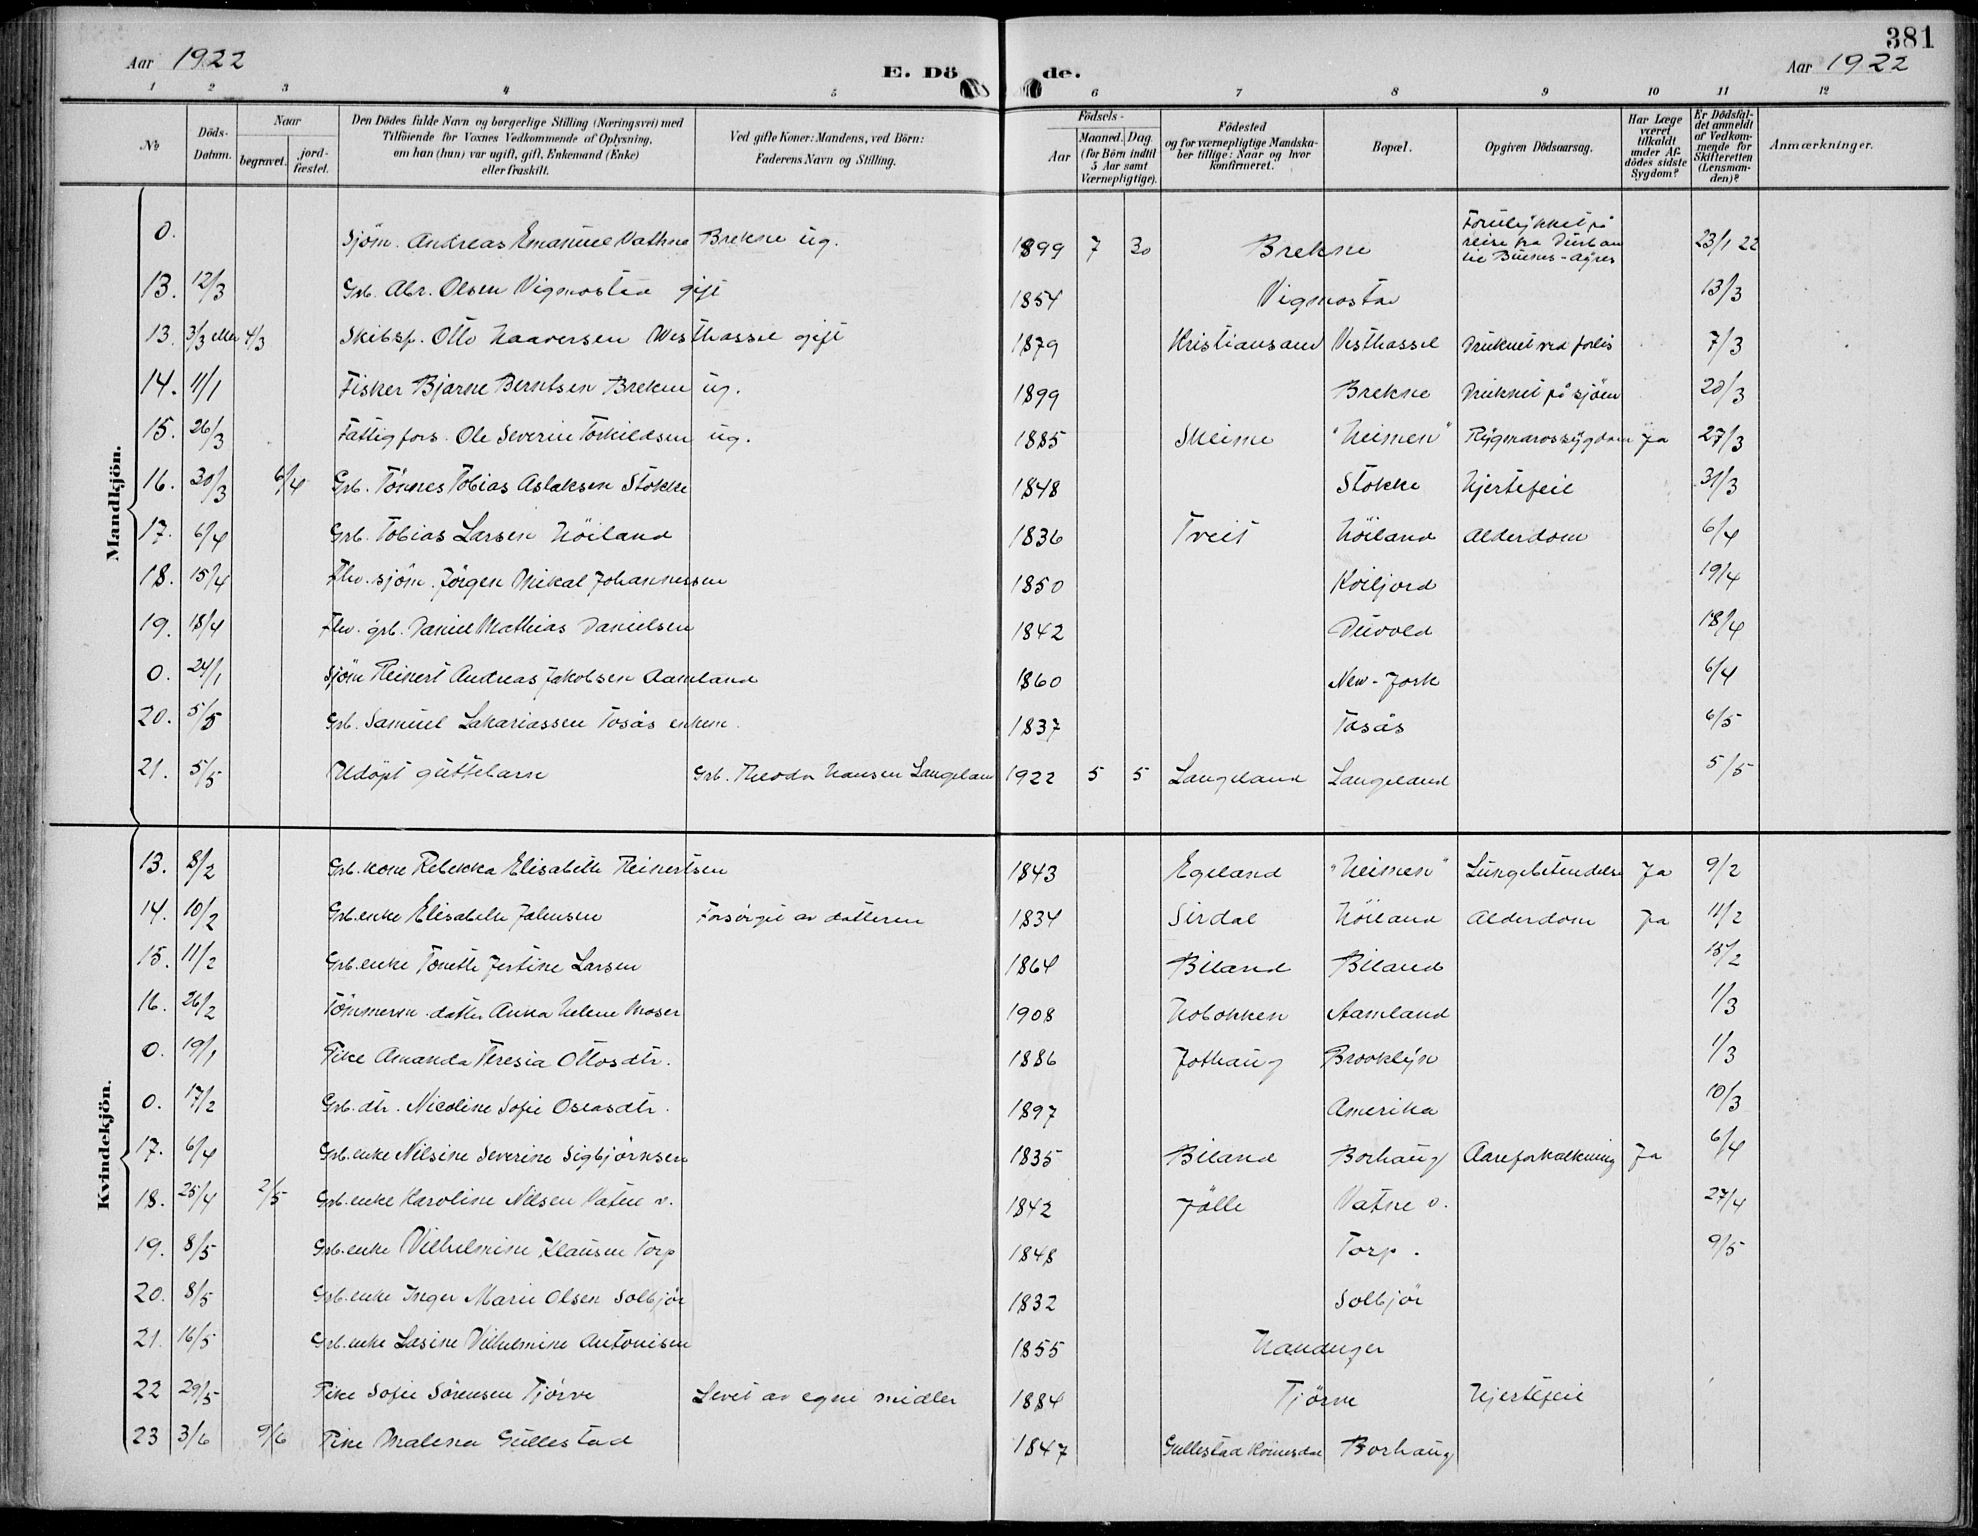 381
Aar 1922 E. Dö de. Aar 1922
1 2 3 4 5 6 7 8 9 10 11 12
No Döds-Datum. Naar begravet. jord-fæstet. Den Dödes fulde Navn og borgerlige Stilling (Næringsvei) med Tilföiende for Voxnes Vedkommende af Oplysning, om han (hun) var ugift, gift, Enkemand (Enke) eller fraskilt. Ved gifte Koner: Mandens, ved Börn: Faderens Navn og Stilling. Födsels- Aar Maaned. Dag. (for Börn indtil 5 Aar samt Værnepligtige). Födested og for værnepligtige Mandska-ber tillige: Naar og hvor konfirmeret. Bopæl. Opgiven Dödsaarsag. Har Læge været tilkaldt under Af-dödes sidste Sygdom? Er Dödsfal-det anmeldt af Vedkom-mende for Skifteretten (Lensman-den)? Anmærkninger.
Mandkjön.
0. Sjöm. Andreas Emanuel Vathne Brekne ug. 1899 7 30 Brekne Forulykket på reise fra Durban til Buenos-Ayres 23/1 22
13. 12/3 Grb. Abr. Olsen Vigmostad gift 1854 Vigmostad 13/3
13. 3/3 eller 4/3 Skibsf. Otto Haaversen Westhassel gift 1879 Kristiansand Vesthassel Druknet ved forlis 7/3
14. 11/1 Fisker Bjarne Berntsen Brekne ug. 1899 Brekne Druknet på sjöen 20/3
15. 26/3 Fattigfors. Ole Severin Torkildsen ug. 1885 Skeime "Heimen" Rygmarvssygdom Ja 27/3
16. 30/3 6/4 Grb. Tönnes Tobias Aslaksen Stokke 1848 Stokke Hjertefeil 31/3
17. 6/4 Grb. Tobias Larsen Höiland 1836 Tveit Höiland Alderdom 6/4
18. 15/4 Fhv. sjöm. Jörgen Mikal Johannessen 1850 Kviljord 19/4
19. 18/4 Fhv. grb. Daniel Mathias Danielsen 1842 Duvold 18/4
0. 24/1 Sjöm Reinert Andreas Jakobsen Aamland 1860 New-Jork 6/4
20. 5/5 Grb. Samuel Sakariassen Tosås enkem. 1837 Tosås 6/5
21. 5/5 Udöpt guttebarn Grb. Theodor Hansen Langeland 1922 5 5 Langeland Langeland 5/5
Kvindekjön.
13. 8/2 Grb. kone Rebekka Elisabeth Reinertsen 1843 Egeland "Heimen" Lungebetendelse Ja 9/2
14. 10/2 Grb. enke Elisabeth Jahnsen Forsörget av datteren 1834 Sirdal Höiland Alderdom Ja 11/2
15. 11/2 Grb. enke Tonette Jestine Larsen 1864 Biland Biland 15/2
16. 26/2 Tömmerm. datter Anna Helene Moser 1908 Hobokken Aamland 1/3
0. 19/1 Pike Amanda Teresia Ottosdtr. 1886 Jothaug Brooklyn 1/3
0. 17/2 Grb. dtr. Nicoline Sofie Oseasdtr. 1897 Amerika 10/3
17. 6/4 Grb. enke Nilsine Severine Sigbjörnsen 1835 Biland Borhaug Aareforkalkning Ja 6/4
18. 25/4 2/5 Grb. enke Karoline Nilsen Vatne v. 1842 Jölle Vatne v. 27/4
19. 8/5 Grb. enke Vilhelmine Klausen Torp 1848 Torp. 9/5
20. 8/5 Grb. enke Inger Marie Olsen Solbjör 1832 Solbjör
21. 16/5 Grb. enke Lasine Vilhelmine Antonisen 1855 Hananger
22 29/5 Pike Sofie Sörensen Tjörve Levet av egne midler 1884 Tjörve Hjertefeil
23 3/6 9/6 Pike Malena Gullestad 1847 Gullestad Kvinesdal Borhaug